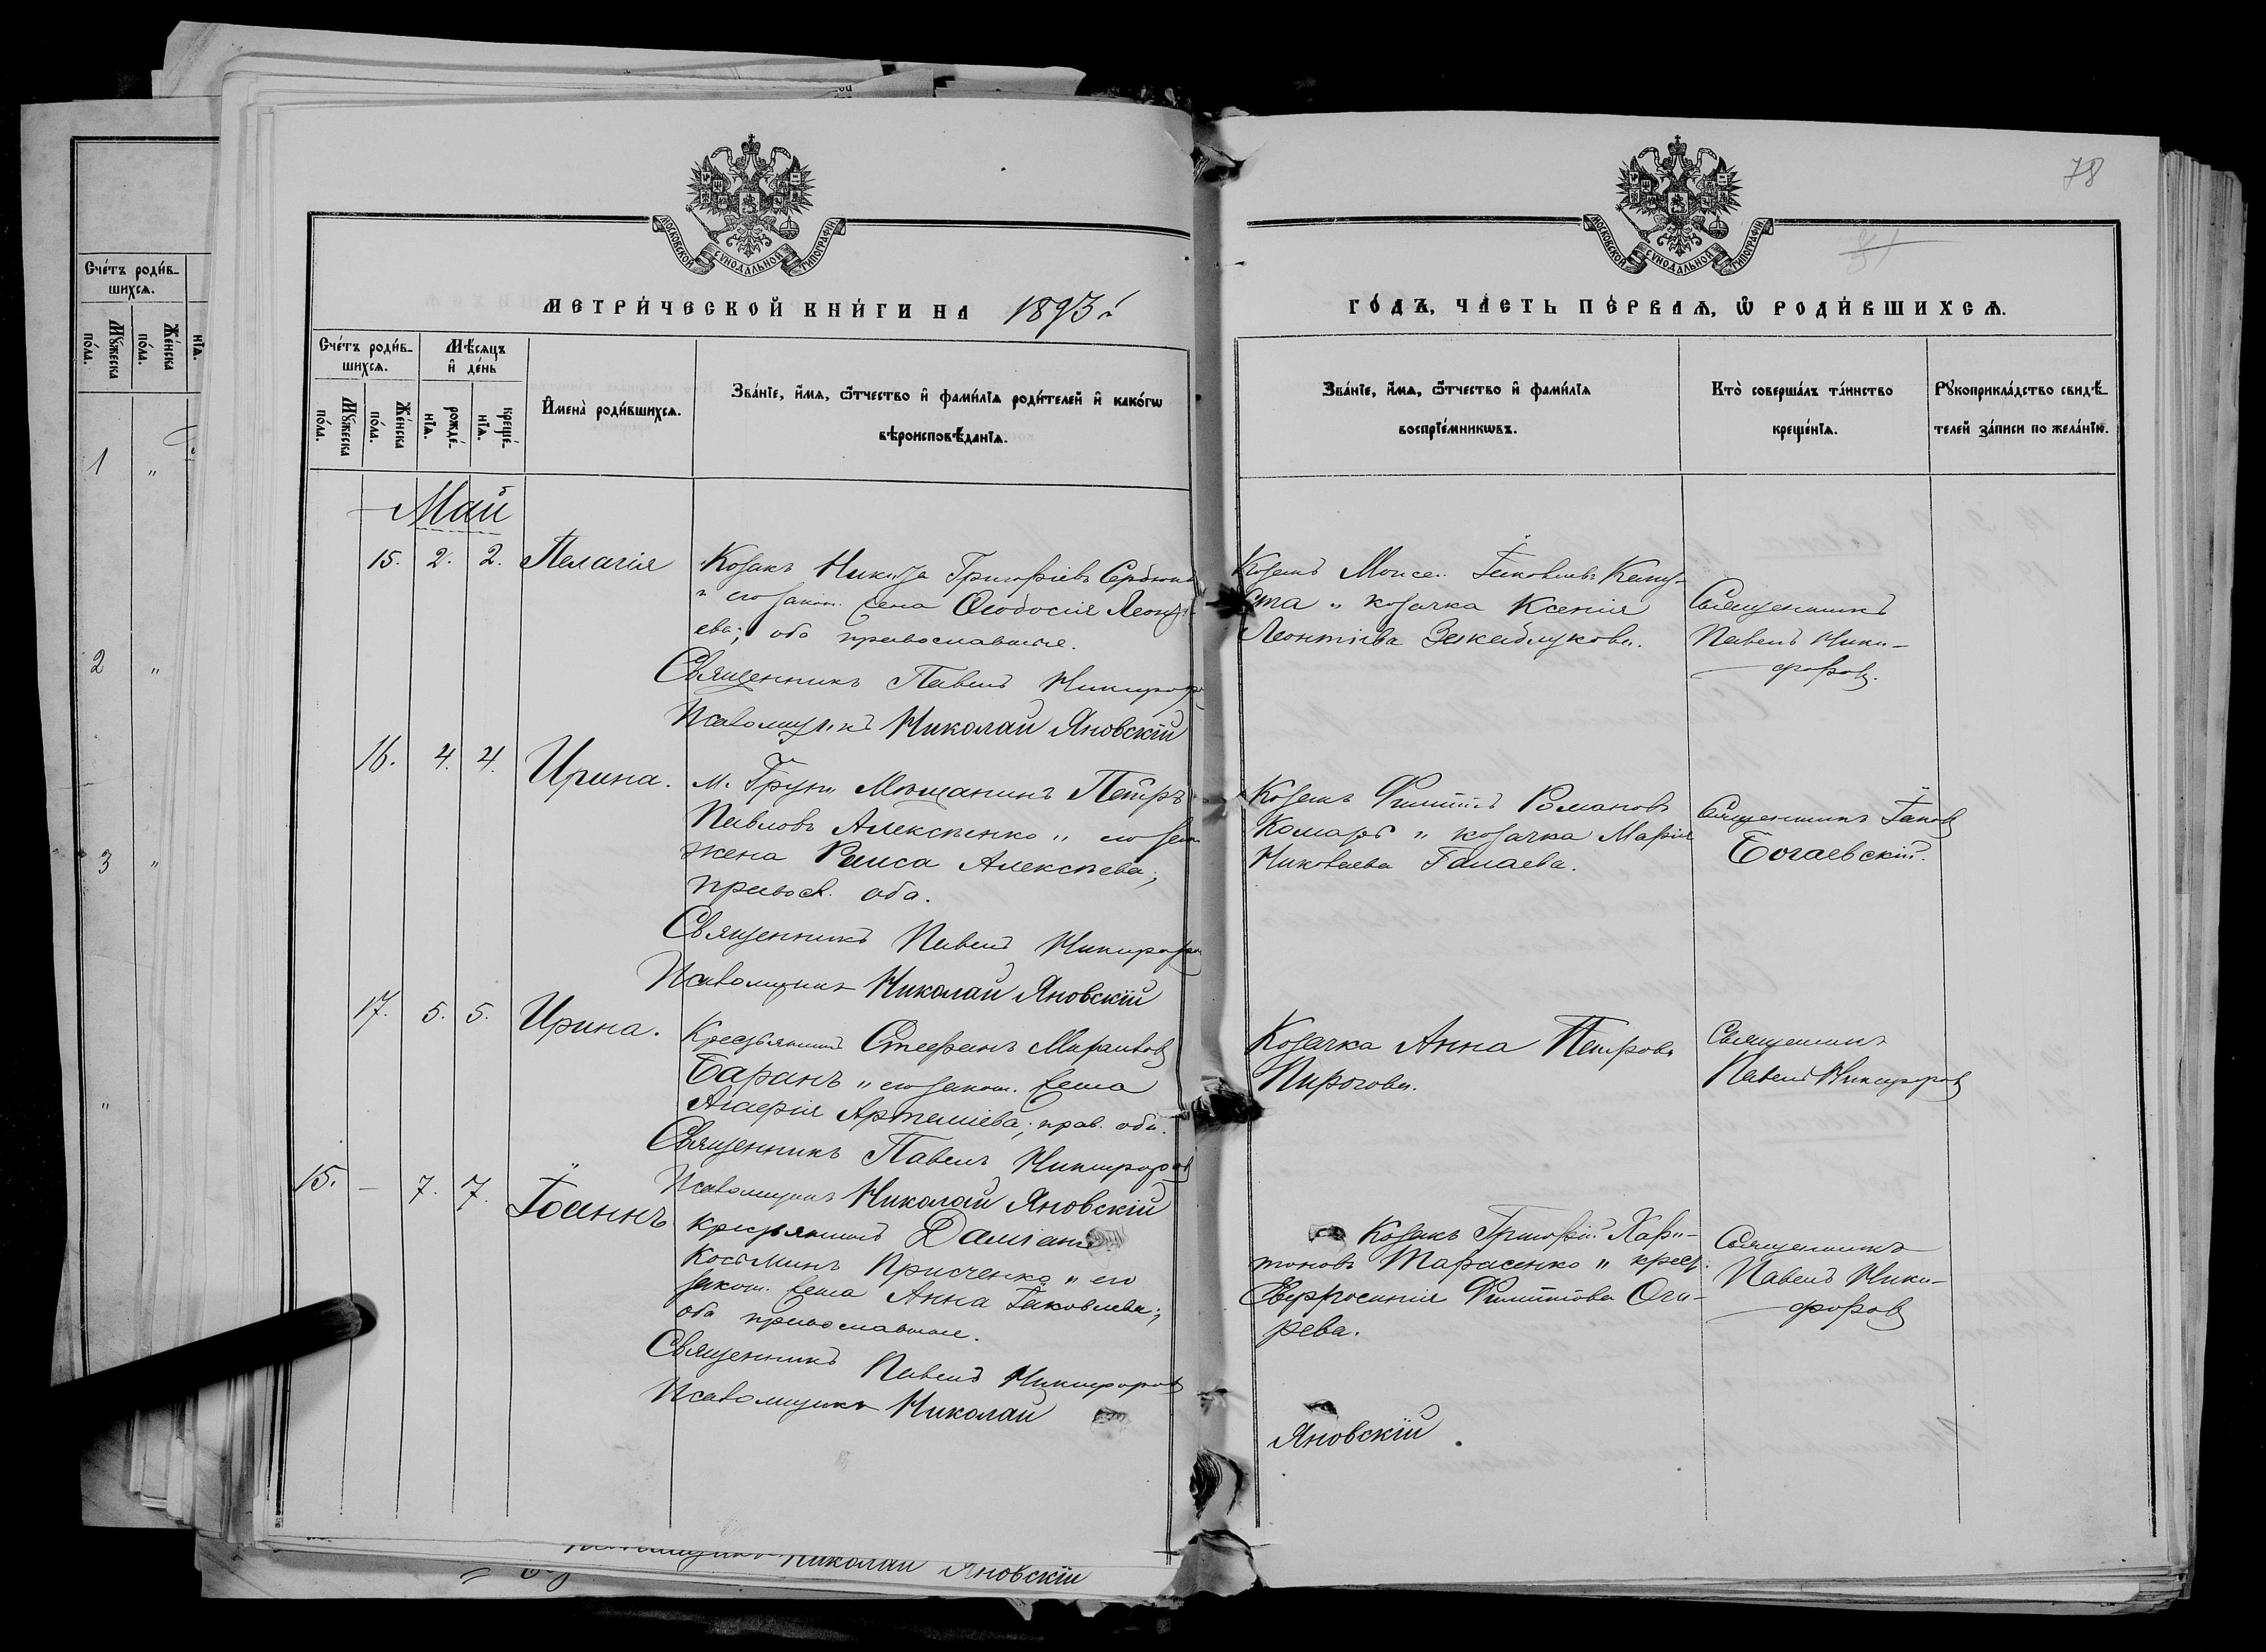 78
81
МОСКОВСКОЙ СУНОДАЛЬНОЙ ТИПОГРАФІИ
МОСКОВСКОЙ СУНОДАЛЬНОЙ ТИПОГРАФІИ
МЕТРИ́ЧЕСКОЙ КНИ́ГИ НА 1893 г.
ГО́ДЪ, ЧА́СТЬ ПЕ́РВАѦ, Ѡ҆ РОДИ́ВШИХСѦ.
Сче́тъ роди́в-
шихсѧ.
Мꙋ́жеска
по́ла.
Же́нска
по́ла.
Мѣ́сѧцъ
и҆ де́нь
рожде́-
нїѧ.
креще́-
нїѧ.
И҆мена̀ роди́вшихсѧ.
Зва́нїе, и҆́мѧ, ѻ҆́тчество и҆ фами́лїѧ роди́телей и҆ како́гѡ
вѣроисповѣ́данїѧ.
Зва́нїе, и҆́мѧ, ѻ҆́тчество и҆ фами́лїѧ
воспрїе́мникѡвъ.
Кто̀ соверша́лъ та́инство
креще́нїѧ.
Рꙋкоприкла́дство свидѣ́-
телей за́писи по жела́нїю.
Май
15. 2. 2. Пелагія
Козакъ Никита Григоріевъ Сердюкъ
и его закон. жена Ѳеодосія Леонті-
ева; оба православные.
Священникъ Павелъ Никифоров
Псаломщикъ Николай Яновскій
Козакъ Моисей Іаковлевъ Капу-
ста и козачка Ксенія
Леонтіева Закаблукова.
Священникъ
Павелъ Ники-
форовъ.
16. 4. 4. Ирина.
м. Груни Мѣщанинъ Петръ
Павловъ Алексѣнко и его зак.
жена Раиса Алексѣева;
правосл. оба.
Священникъ Павелъ Никифоров
Псаломщикъ Николай Яновскій
Козакъ Филиппъ Романовъ
Комаръ и козачка Марія
Николаева Галаева.
Священникъ Іаковъ
Богаевскій.
17. 5. 5. Ирина.
Крестьянинъ Стефанъ Мирановъ
Баранъ и его закон. жена
Агафія Артеміева; прав. оба.
Священникъ Павелъ Никифоровъ
Псаломщикъ Николай Яновскій
Козачка Анна Петрова
Пирогова.
Священникъ
Павелъ Никифоровъ
15. — 7. 7. Іоаннъ
Крестьянинъ Даміанъ
Косьминъ Присченко и его
закон. жена Анна Іаковлева;
оба православные.
Священникъ Павелъ Никифоровъ
Псаломщикъ Николай
Яновскій
Козакъ Григорій Хари-
тоновъ Тарасенко и крест.
Евфросинія Филиппова Оги-
рева.
Священникъ
Павелъ Ники-
форовъ
Сче́тъ роди́в-
шихсѧ.
Мꙋ́жеска
по́ла.
Же́нска
по́ла.
нїѧ.
1 "
2 "
3 "
"
Псаломщикъ Николай Яновскій